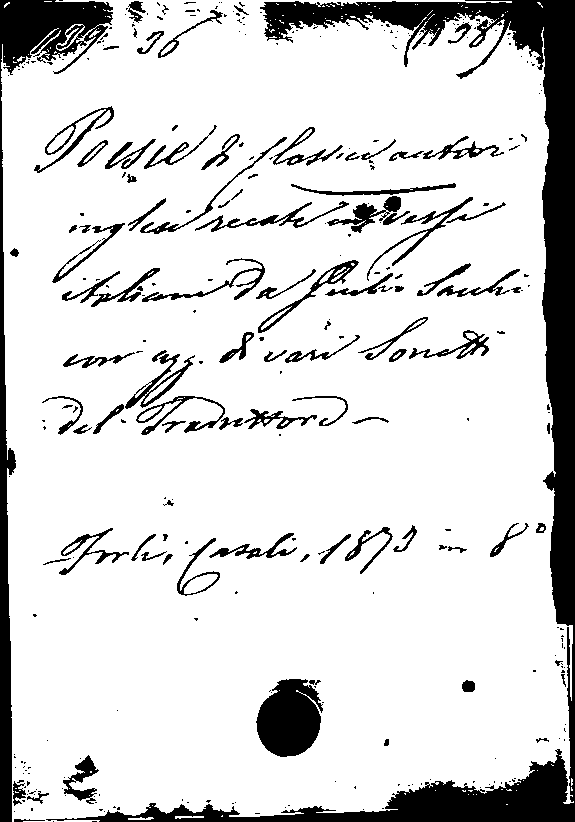 139-36 (1138)
Poesie di classici autori
inglesi recate in versi
italiani da Giulio Sacchi
con agg. di vari Sonetti
del Traduttore —
Forlì, Casali, 1873 in 8°